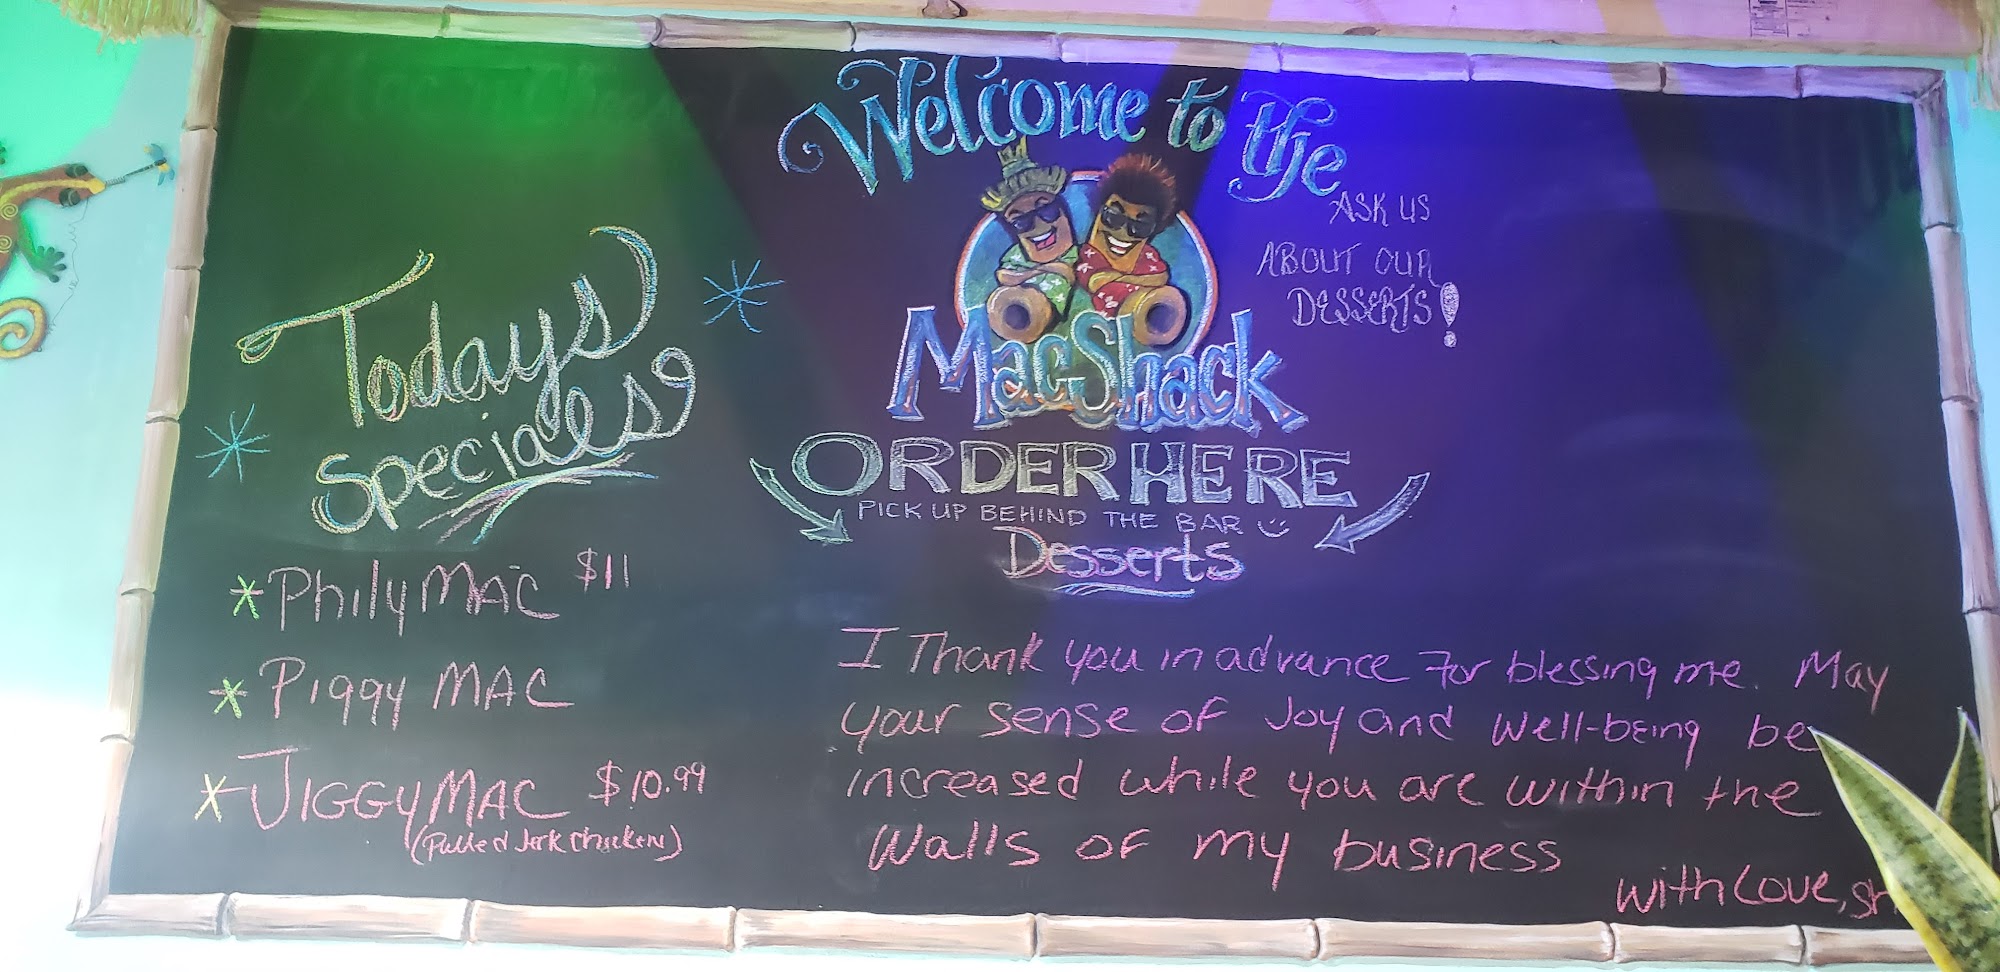 Welcome to the
MacShack
ASK US
ABOUT OUR
DESSERTS!
ORDER HERE
PICK UP BEHIND THE BAR
Desserts
Todays
Specials
PhilyMAC $11
Piggy MAC
JIGGY MAC $10.99
(Pulled Jerk Chicken)
I Thank you in advance For blessing me. May
your sense of Joy and well-being be
increased while you are within the
walls of my business
with Love,